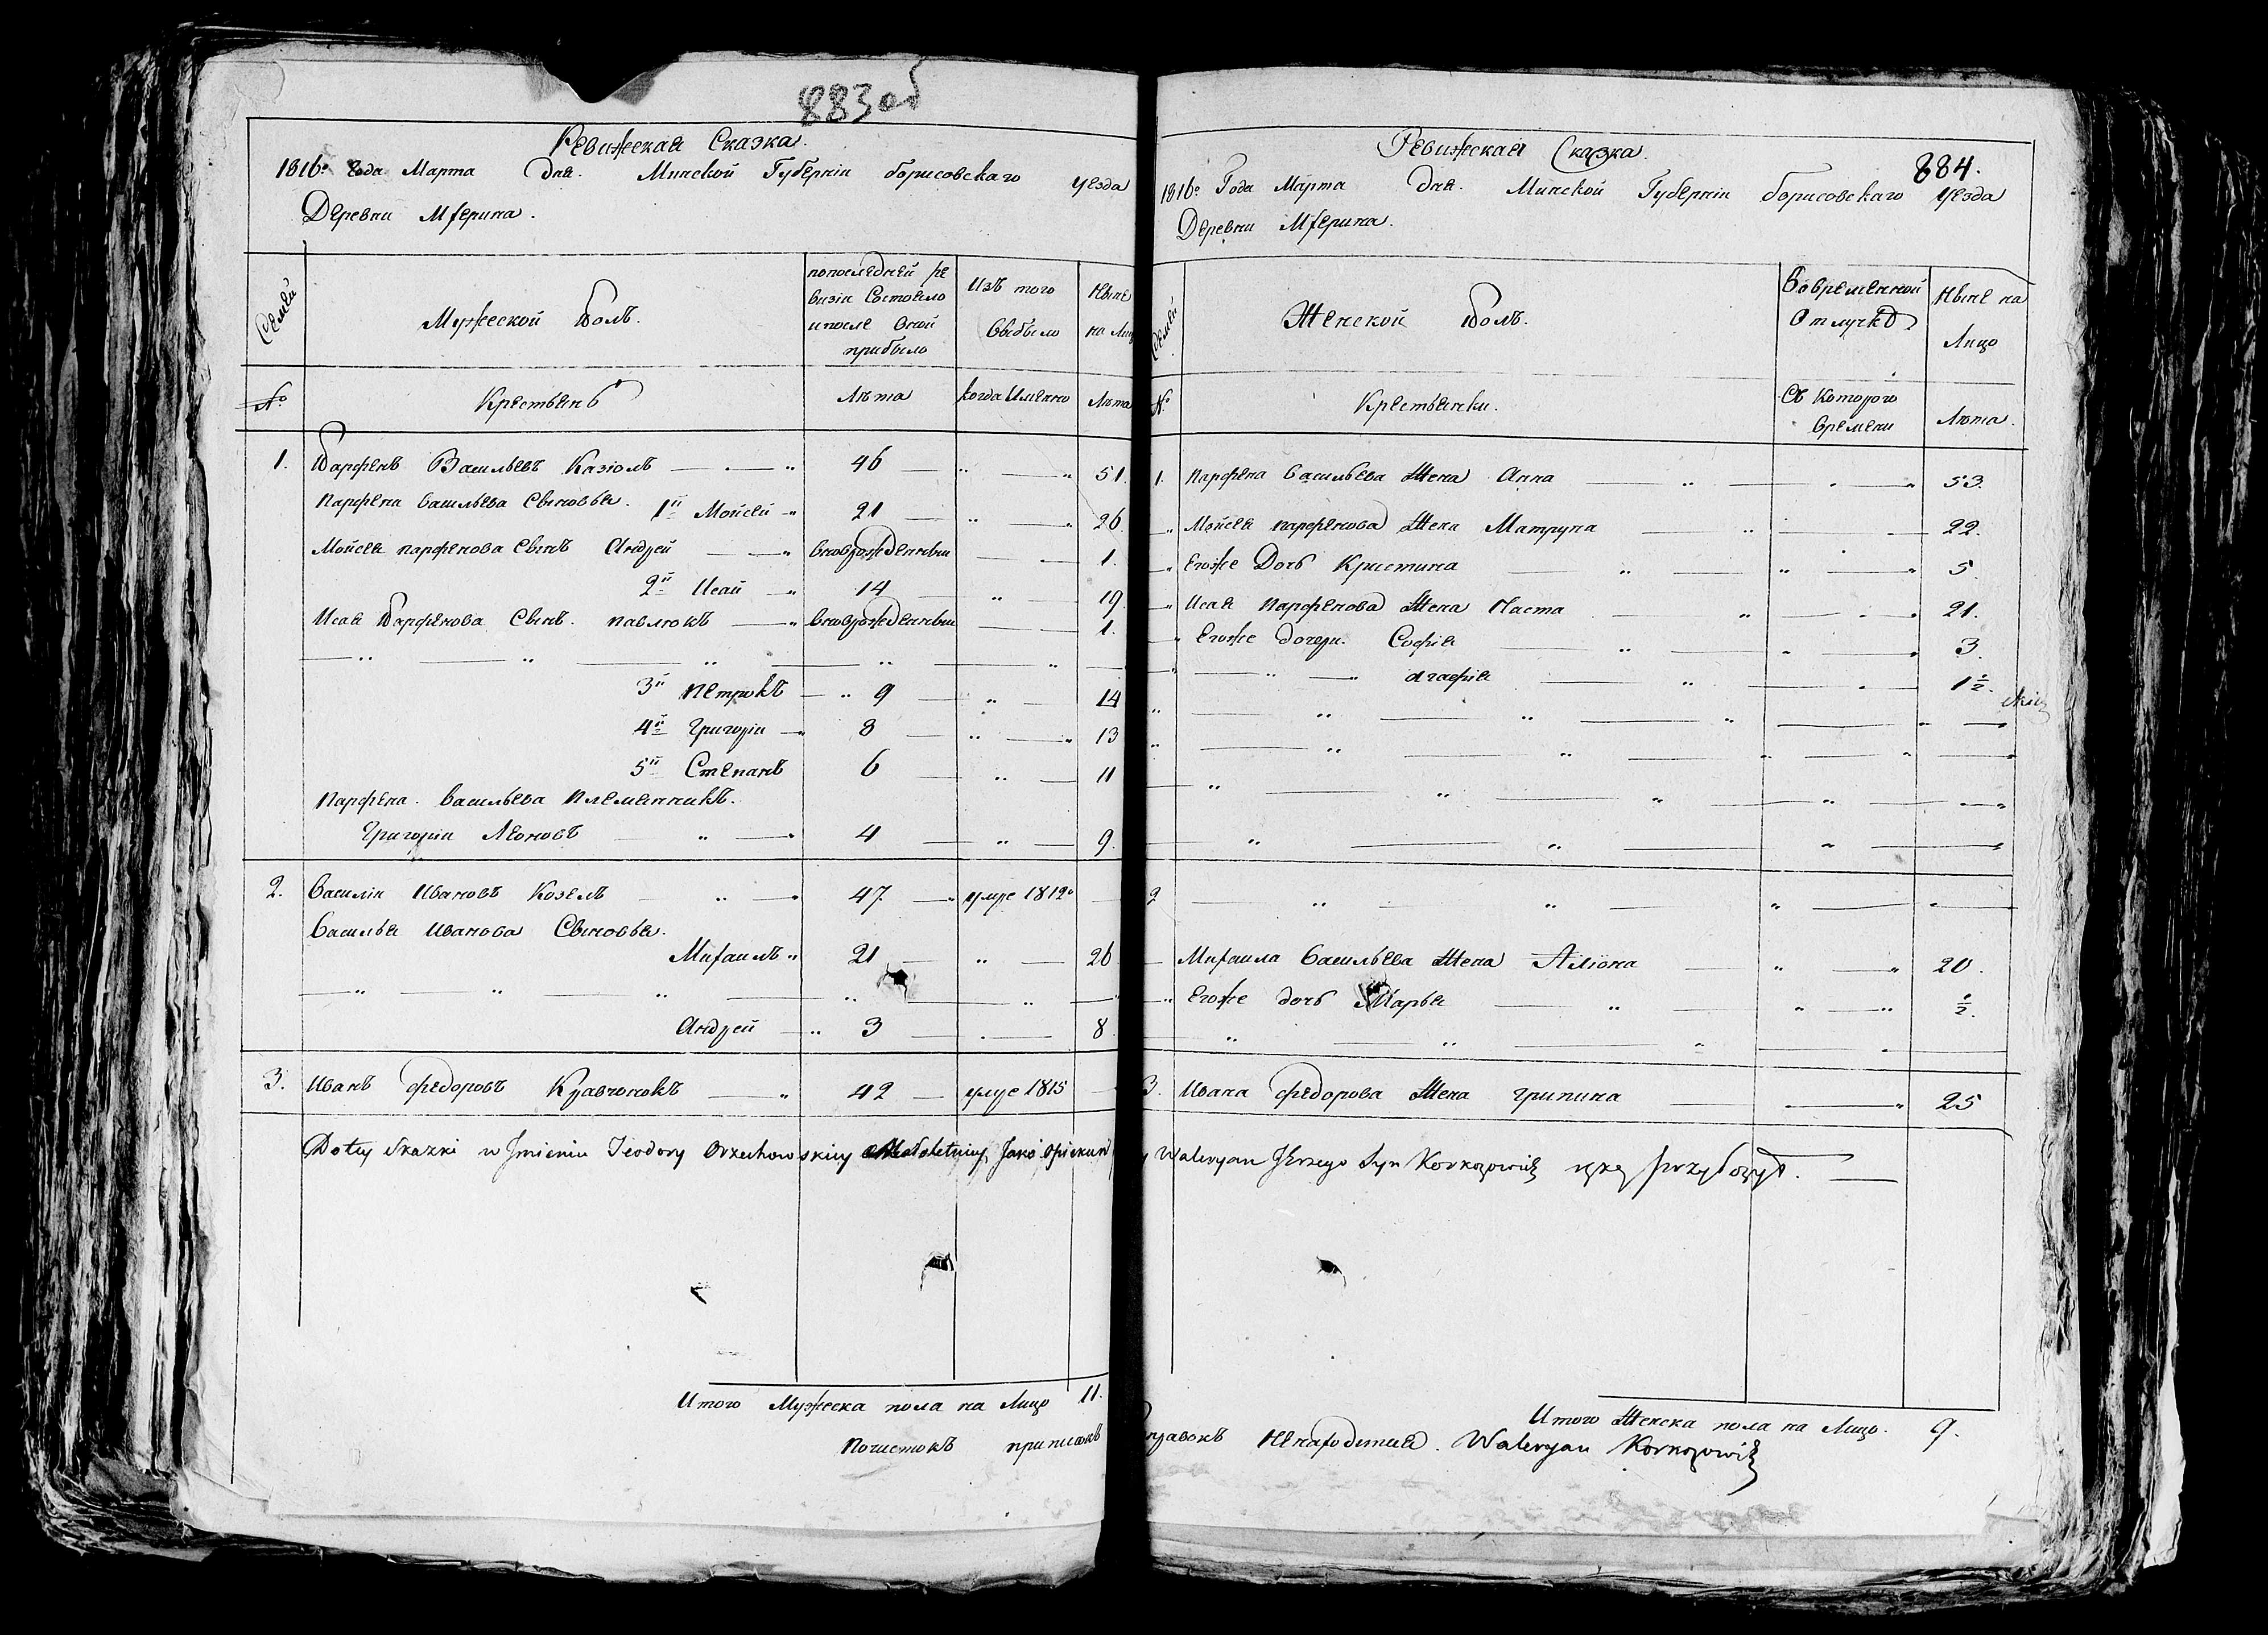 883об
Ревижская Сказка.
1816го Года Марта Дня. Минской Губернїи борисовскаго уезда
Деревни Мхерина.
Семей
Мужеской Полъ.
попоследней ре
визїи Состояло
ипосле оной
прибыло
Изъ того
выбыло
Ныне
на Лицо
№
Крестьянъ
Лѣта
когда Имянно
Лѣта
1. Парфенъ Васильевъ Казїолъ 46 51.
Парфена васильева Сыновья. 1й Мойсей 21 26
Мойсея парфенова Сынъ Андрей вноврожденный 1.
2й Исай 14 19.
Исая Парфенова Сынъ. павлюкъ вноврожденный 1.
3й Петрукъ 9 14
4й Григорїи 8 13
5й Степанъ 6 11
Парфена. васильева племянникъ.
Григорїи Леоновъ 4 9.
2. василїи Ивановъ Козелъ 47. умре 1812го
Василья иванова Сыновья.
Михаилъ 21 26
Андрей 3 8
3. Иванъ федоровъ Кравчонокъ 42 умре 1815
Do tey skazki w Jmieniu Teodory Orzechowskiey Małoletniey, Jako Opiekun
Итого Мужеска пола на Лицо 11.
Почистокъ приписокъ
Ревижская Сказка.
884.
1816го Года Марта Дня. Минской Губернїи борисовскаго уезда
Деревни Мхерина.
Семей
Женской Полъ.
Вовременной
Отлучкѣ
Ныне на
Лицо
№.
Крестьянки.
Съ Которого
времени
Лѣта.
1. парфена васильева Жена Анна 53.
Мойсея парфенова Жена Матруна 22.
Егоже Дочь Кристина 5.
Исая парфенова Жена Наста 21.
Егоже дочери. Софїя 3.
агафїя 1 1/2.
2
Михаила васильева Жена Алїона 20.
Егоже дочь Марья 1/2.
3. Ивана федорова Жена Грипина 25
Waleryan Jerzego Syn Korkozowicz rękę przyłożył.
Итого Женска пола на Лицо. 9.
правокъ ненаходится. Waleryan Korkozowicz